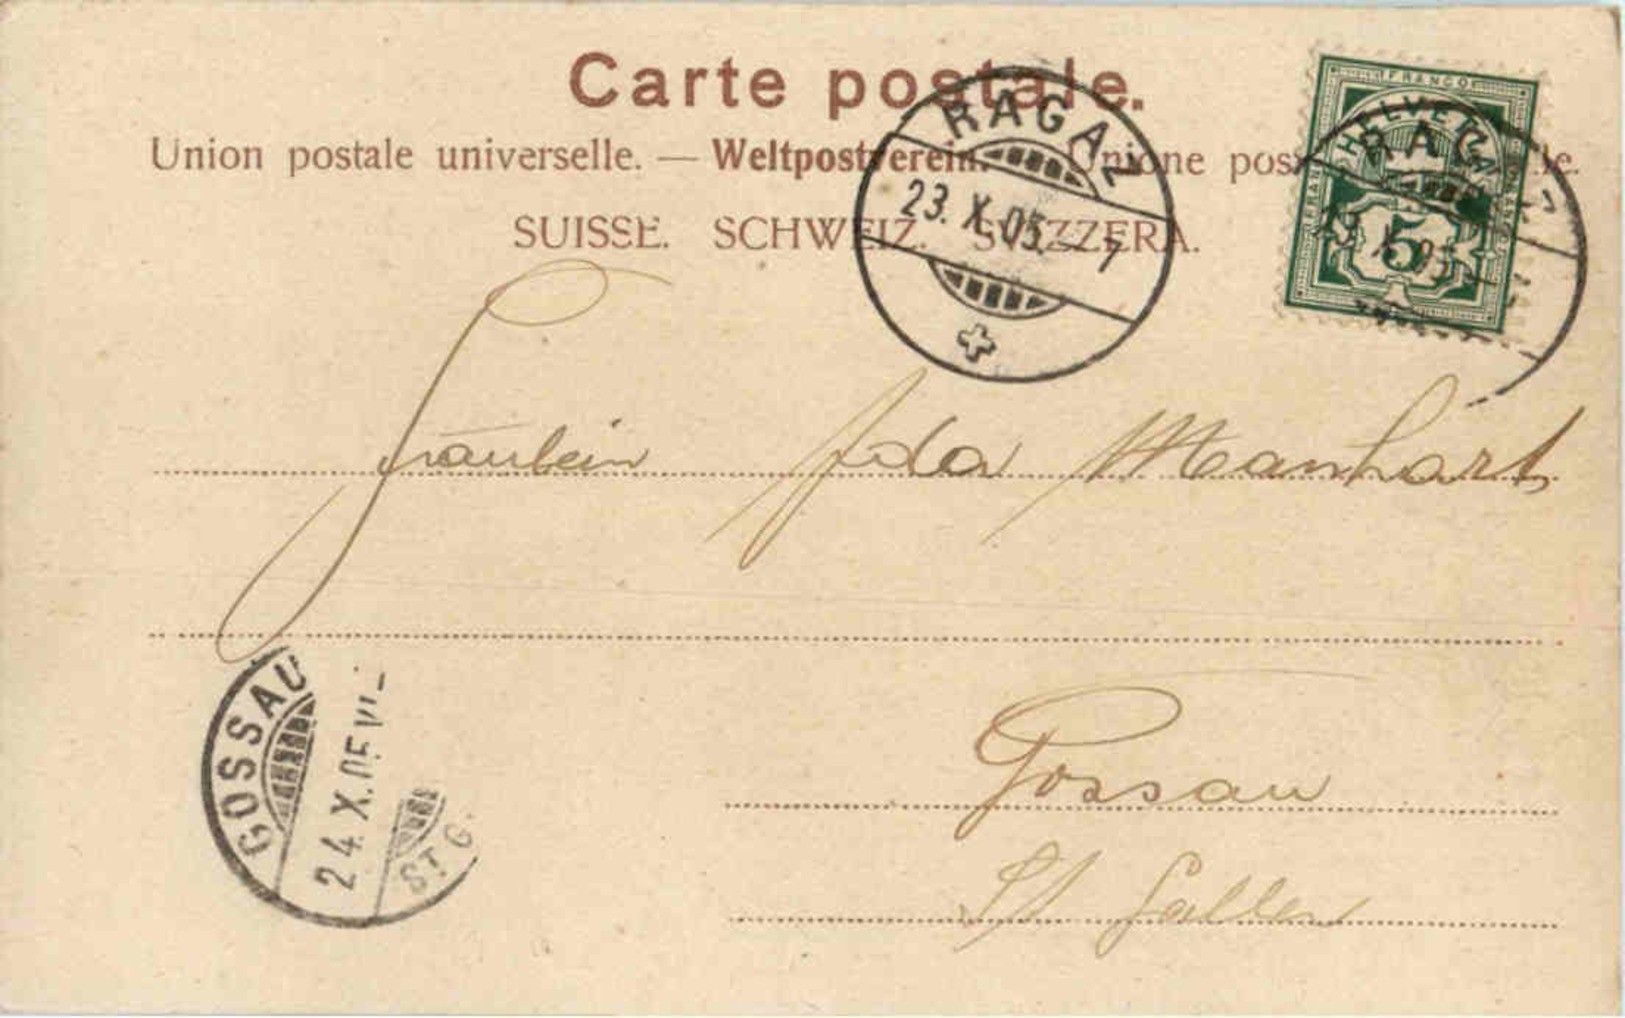 Carte postale.
Union postale universelle. — Weltpostverein. — Unione postale
SUISSE. SCHWEIZ. SVIZZERA.
RAGAZ
23. X. 05. - 7
FRANCO
HELVETIA
5
RAGAZ
Fräulein Ida Manhart
Gossau
St Gallen
GOSSAU
24. X. 05 VI -
ST. G.